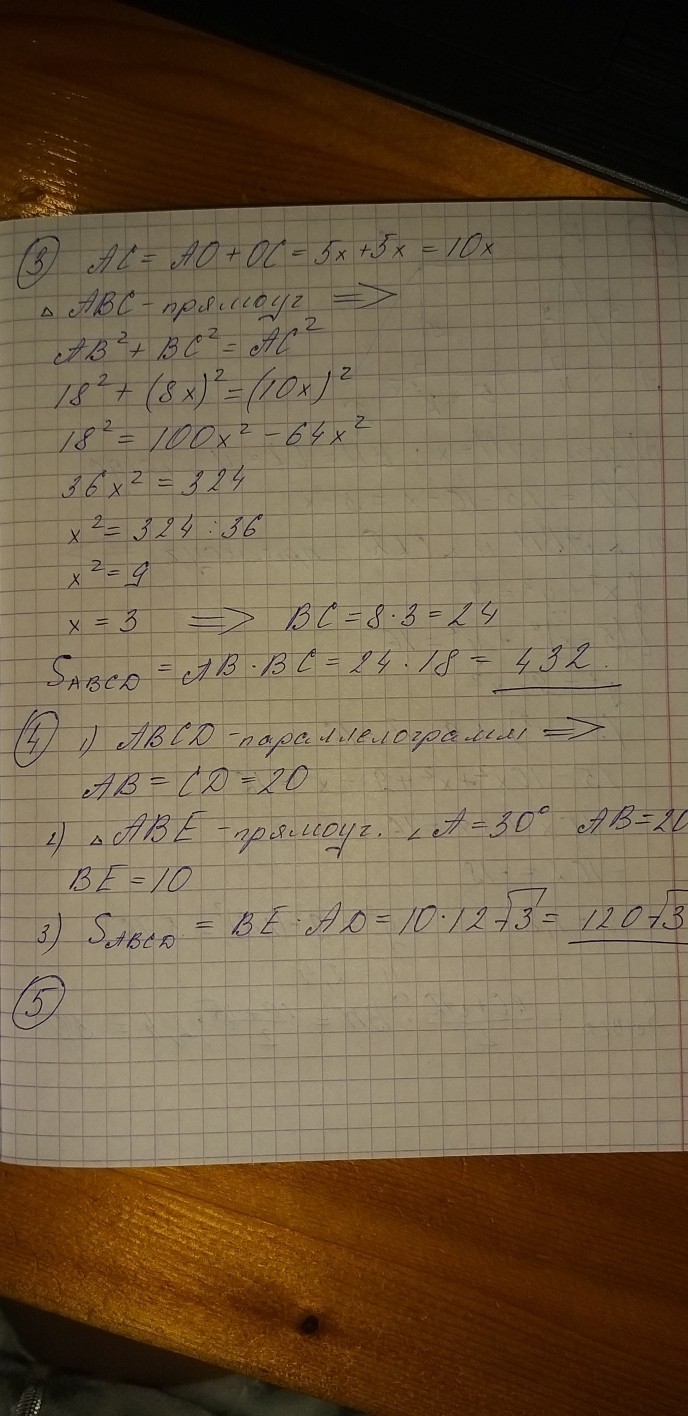 ③ AC = AO + OC = 5x + 5x = 10x
△ ABC - прямоуг ⟹
AB² + BC² = AC²
18² + (8x)² = (10x)²
18² = 100x² - 64x²
36x² = 324
x² = 324 : 36
x² = 9
x = 3 ⟹ BC = 8 · 3 = 24
S_ABCD = AB · BC = 24 · 18 = 432.
④ 1) ABCD - параллелограмм ⟹
AB = CD = 20
2) △ ABE - прямоуг. ∠A = 30° AB = 20
BE = 10
3) S_ABCD = BE · AD = 10 · 12√3 = 120√3
⑤